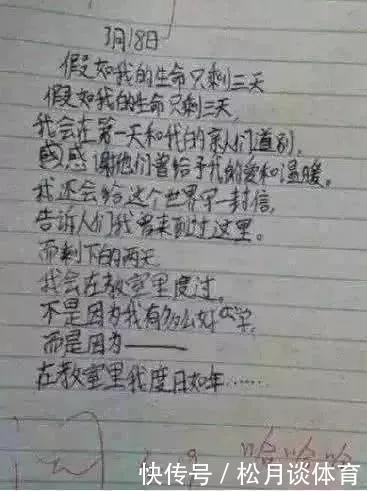 3月18日
假如我的生命只剩三天
假如我的生命只剩三天,
我会在第一天和我的亲人们道别,
感感谢他们曾给予我的爱和温暖。
我还会给这个世界写一封信,
告诉人们我曾来到过这里。
而剩下的两天
我会在教室里度过。
不是因为我有多么好学,
而是因为——
在教室里我度日如年……
哈哈哈
快传号/松月谈体育